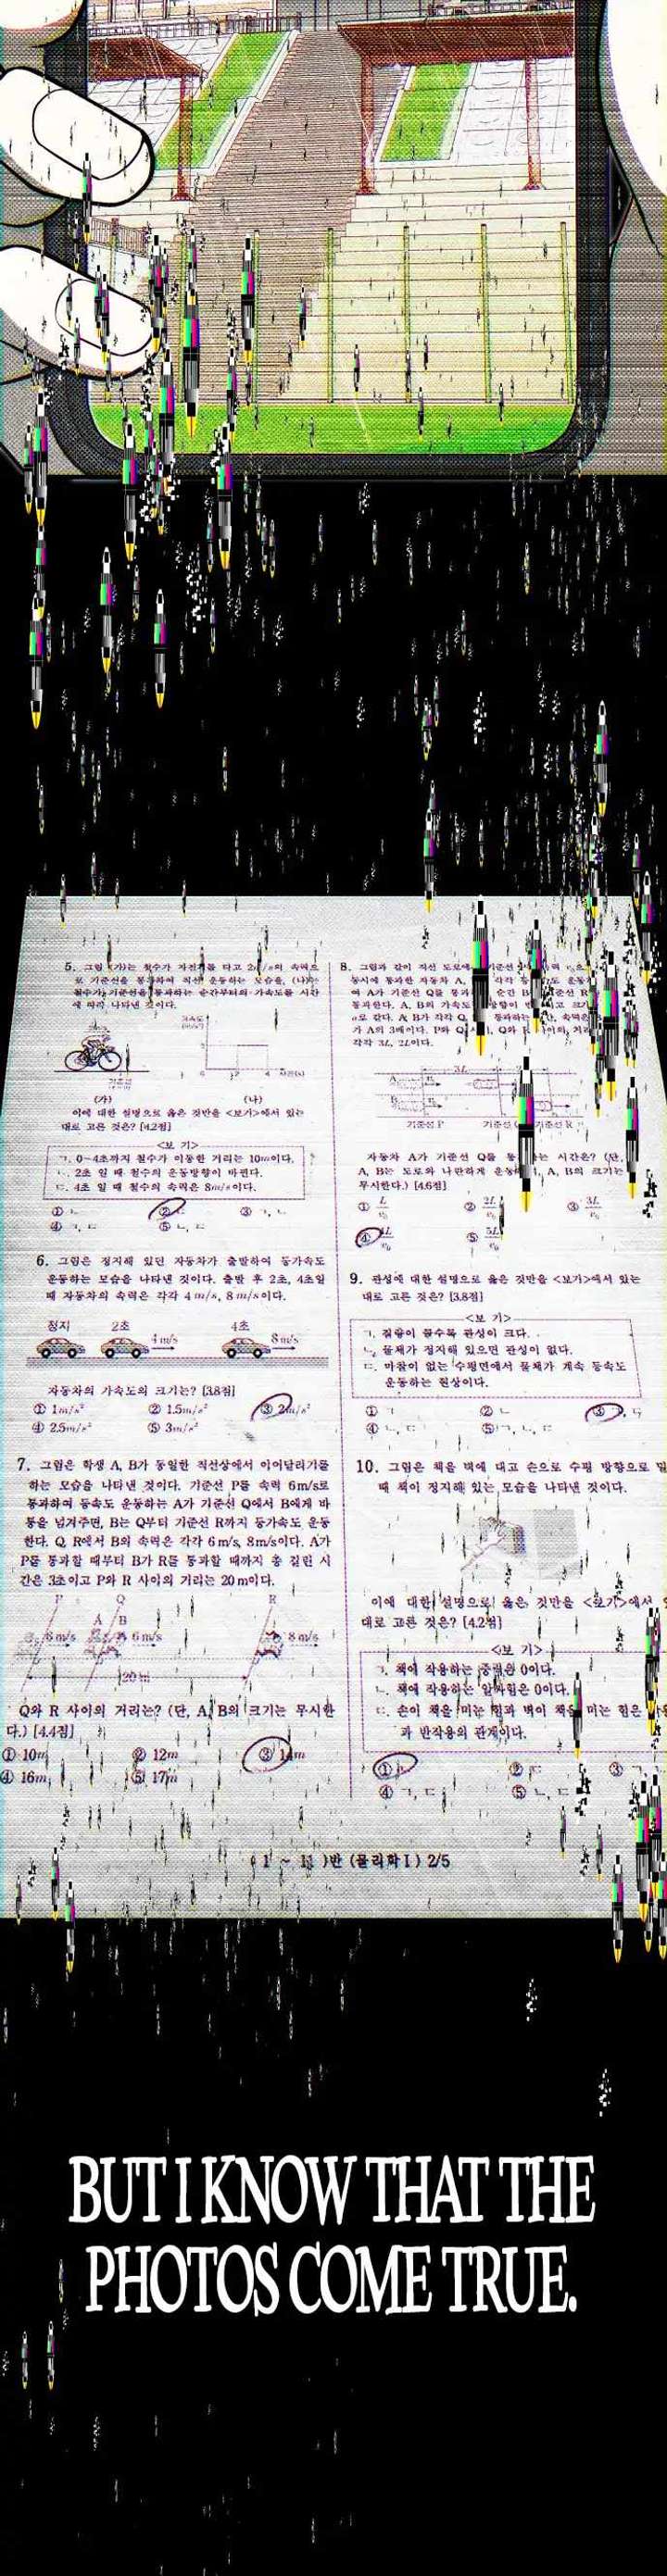 5. 그림 (가)는 철수가 자전거를 타고 2m/s의 속력으
로 기준선을 통과하여 직선 운동하는 모습을, (나)는
철수가 기준선을 통과하는 순간부터의 가속도를 시간
에 따라 나타낸 것이다.
(가) (나)
이에 대한 설명으로 옳은 것만을 <보기>에서 있는
대로 고른 것은? [4.2점]
<보 기>
ㄱ. 0~4초까지 철수가 이동한 거리는 10m이다.
ㄴ. 2초 일 때 철수의 운동방향이 바뀐다.
ㄷ. 4초 일 때 철수의 속력은 8m/s이다.
① ㄱ ② ㄴ ③ ㄱ, ㄴ
④ ㄱ, ㄷ ⑤ ㄴ, ㄷ
6. 그림은 정지해 있던 자동차가 출발하여 등가속도
운동하는 모습을 나타낸 것이다. 출발 후 2초, 4초일
때 자동차의 속력은 각각 4m/s, 8m/s이다.
정지 2초 4m/s 4초 8m/s
자동차의 가속도의 크기는? [3.8점]
① 1m/s² ② 1.5m/s² ③ 2m/s²
④ 2.5m/s² ⑤ 3m/s²
7. 그림은 학생 A, B가 동일한 직선상에서 이어달리기를
하는 모습을 나타낸 것이다. 기준선 P를 속력 6m/s로
통과하여 등속도 운동하는 A가 기준선 Q에서 B에게 바
통을 넘겨주면, B는 Q부터 기준선 R까지 등가속도 운동
한다. Q, R에서 B의 속력은 각각 6m/s, 8m/s이다. A가
P를 통과할 때부터 B가 R를 통과할 때까지 총 걸린 시
간은 3초이고 P와 R 사이의 거리는 20m이다.
P Q R
A B
6m/s 6m/s 8m/s
20m
Q와 R 사이의 거리는? (단, A, B의 크기는 무시한
다.) [4.4점]
① 10m ② 12m ③ 14m
④ 16m ⑤ 17m
8. 그림과 같이 직선 도로에서 기준선
동시에 통과한 자동차 A, 각각 등 도 운동
여 A가 기준선 Q를 통과 순간 B 기준선 R
통과한다. A, B의 가속도 방향이 고 크기
a로 같다. A, B가 각각 Q, 통과하는 속력은
가 A의 3배이다. P와 Q 사이, Q와 R 사이의 거리
각각 3L, 2L이다.
3L
기준선 P 기준선 기준선 R
자동차 A가 기준선 Q를 통 는 시간은? (단,
A, B는 도로와 나란하게 운동 , A, B의 크기는
무시한다.) [4.6점]
① L/v₀ ② 2L/v₀ ③ 3L/v₀
④ 4L/v₀ ⑤ 5L/v₀
9. 관성에 대한 설명으로 옳은 것만을 <보기>에서 있는
대로 고른 것은? [3.8점]
<보 기>
ㄱ. 질량이 클수록 관성이 크다.
ㄴ. 물체가 정지해 있으면 관성이 없다.
ㄷ. 마찰이 없는 수평면에서 물체가 계속 등속도
운동하는 현상이다.
① ㄱ ② ㄴ ③ ㄱ, ㄷ
④ ㄴ, ㄷ ⑤ ㄱ, ㄴ, ㄷ
10. 그림은 책을 벽에 대고 손으로 수평 방향으로 밀
때 책이 정지해 있는 모습을 나타낸 것이다.
이에 대한 설명으로 옳은 것만을 <보기>에서
대로 고른 것은? [4.2점]
<보 기>
ㄱ. 책에 작용하는 중력은 0이다.
ㄴ. 책에 작용하는 알짜힘은 0이다.
ㄷ. 손이 책을 미는 힘과 벽이 책을 미는 힘은 작용
과 반작용의 관계이다.
① ㄴ ② ㄷ ③ ㄱ
④ ㄱ, ㄷ ⑤ ㄴ, ㄷ
( 1 ~ 11 )반 (물리학Ⅰ) 2/5
BUT I KNOW THAT THE
PHOTOS COME TRUE.